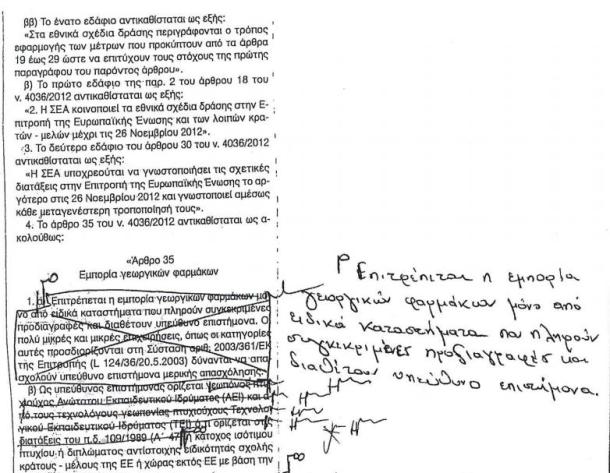 ββ) Το ένατο εδάφιο αντικαθίσταται ως εξής:
«Στα εθνικά σχέδια δράσης περιγράφονται ο τρόπος
εφαρμογής των μέτρων που προκύπτουν από τα άρθρα
19 έως 29 ώστε να επιτύχουν τους στόχους της πρώτης
παραγράφου του παρόντος άρθρου».
β) Το πρώτο εδάφιο της παρ. 2 του άρθρου 18 του
ν. 4036/2012 αντικαθίσταται ως εξής:
«2. Η ΣΕΑ κοινοποιεί τα εθνικά σχέδια δράσης στην Ε-
πιτροπή της Ευρωπαϊκής Ένωσης και των λοιπών κρα-
τών - μελών μέχρι τις 26 Νοεμβρίου 2012».
3. Το δεύτερο εδάφιο του άρθρου 30 του ν. 4036/2012
αντικαθίσταται ως εξής:
«Η ΣΕΑ υποχρεούται να γνωστοποιήσει τις σχετικές
διατάξεις στην Επιτροπή της Ευρωπαϊκής Ένωσης το αρ-
γότερο στις 26 Νοεμβρίου 2012 και γνωστοποιεί αμέσως
κάθε μεταγενέστερη τροποποίησή τους».
4. Το άρθρο 35 του ν. 4036/2012 αντικαθίσταται ως α-
κολούθως:
«Άρθρο 35
Εμπορία γεωργικών φαρμάκων
1. α) Επιτρέπεται η εμπορία γεωργικών φαρμάκων μό-
νο από ειδικά καταστήματα που πληρούν συγκεκριμένες
προδιαγραφές και διαθέτουν υπεύθυνο επιστήμονα. Ο
πολύ μικρές και μικρές επιχειρήσεις, όπως οι κατηγορίες
αυτές προσδιορίζονται στη Σύσταση αριθ. 2003/361/ΕΚ
της Επιτροπής (L 124/36/20.5.2003) δύνανται να απα-
σχολούν υπεύθυνο επιστήμονα μερικής απασχόλησης.
β) Ως υπεύθυνος επιστήμονας ορίζεται γεωπόνος πτυ-
χιούχος Ανώτατου Εκπαιδευτικού Ιδρύματος (ΑΕΙ) και α-
πό τους τεχνολόγους γεωπονίας πτυχιούχους Τεχνολο-
γικού Εκπαιδευτικού Ιδρύματος (ΤΕΙ) ό,τι ορίζεται στις
διατάξεις του π.δ. 109/1989 (Α΄ 47) ή κάτοχος ισότιμου
πτυχίου ή διπλώματος αντίστοιχης ειδικότητας σχολής
κράτους - μέλους της ΕΕ ή χώρας εκτός ΕΕ με βάση την
Επιτρέπεται η εμπορία
γεωργικών φαρμάκων μόνο από
ειδικά καταστήματα που πληρούν
συγκεκριμένες προδιαγραφές και
διαθέτουν υπεύθυνο επιστήμονα.